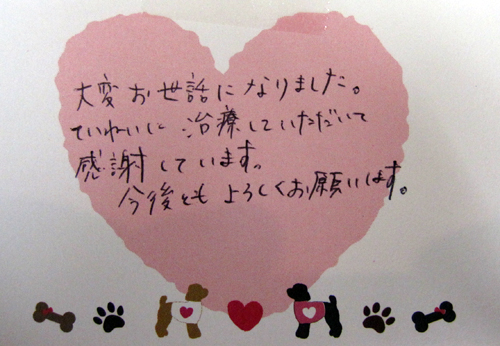 大変お世話になりました。
ていねいに治療していただいて
感謝しています。
今後ともよろしくお願いします。